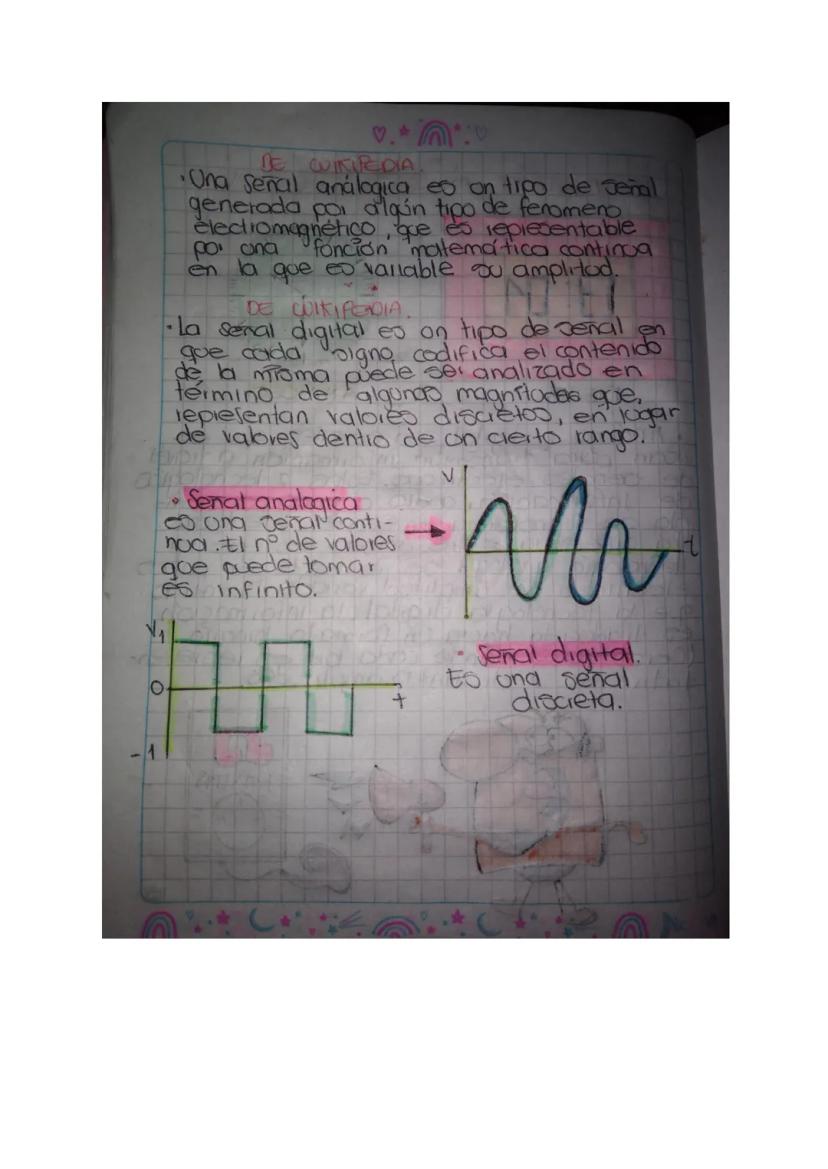 DE WIKIPEDIA.
• Una señal análogica es un tipo de señal
generada por algún tipo de fenomeno
electromagnético, que es representable
por una función matemática continua
en la que es variable su amplitud.
DE WIKIPEDIA.
• La señal digital es un tipo de señal en
que cada signo codifica el contenido
de la misma puede ser analizado en
término de algunas magnitudes que,
representan valores discretos, en lugar
de valores dentro de un cierto rango.
• Señal analogica
es una señal conti-
nua. El nº de valores
que puede tomar
es infinito.
V
t
V1
0
-1
t
• Señal digital.
Es una señal
discreta.